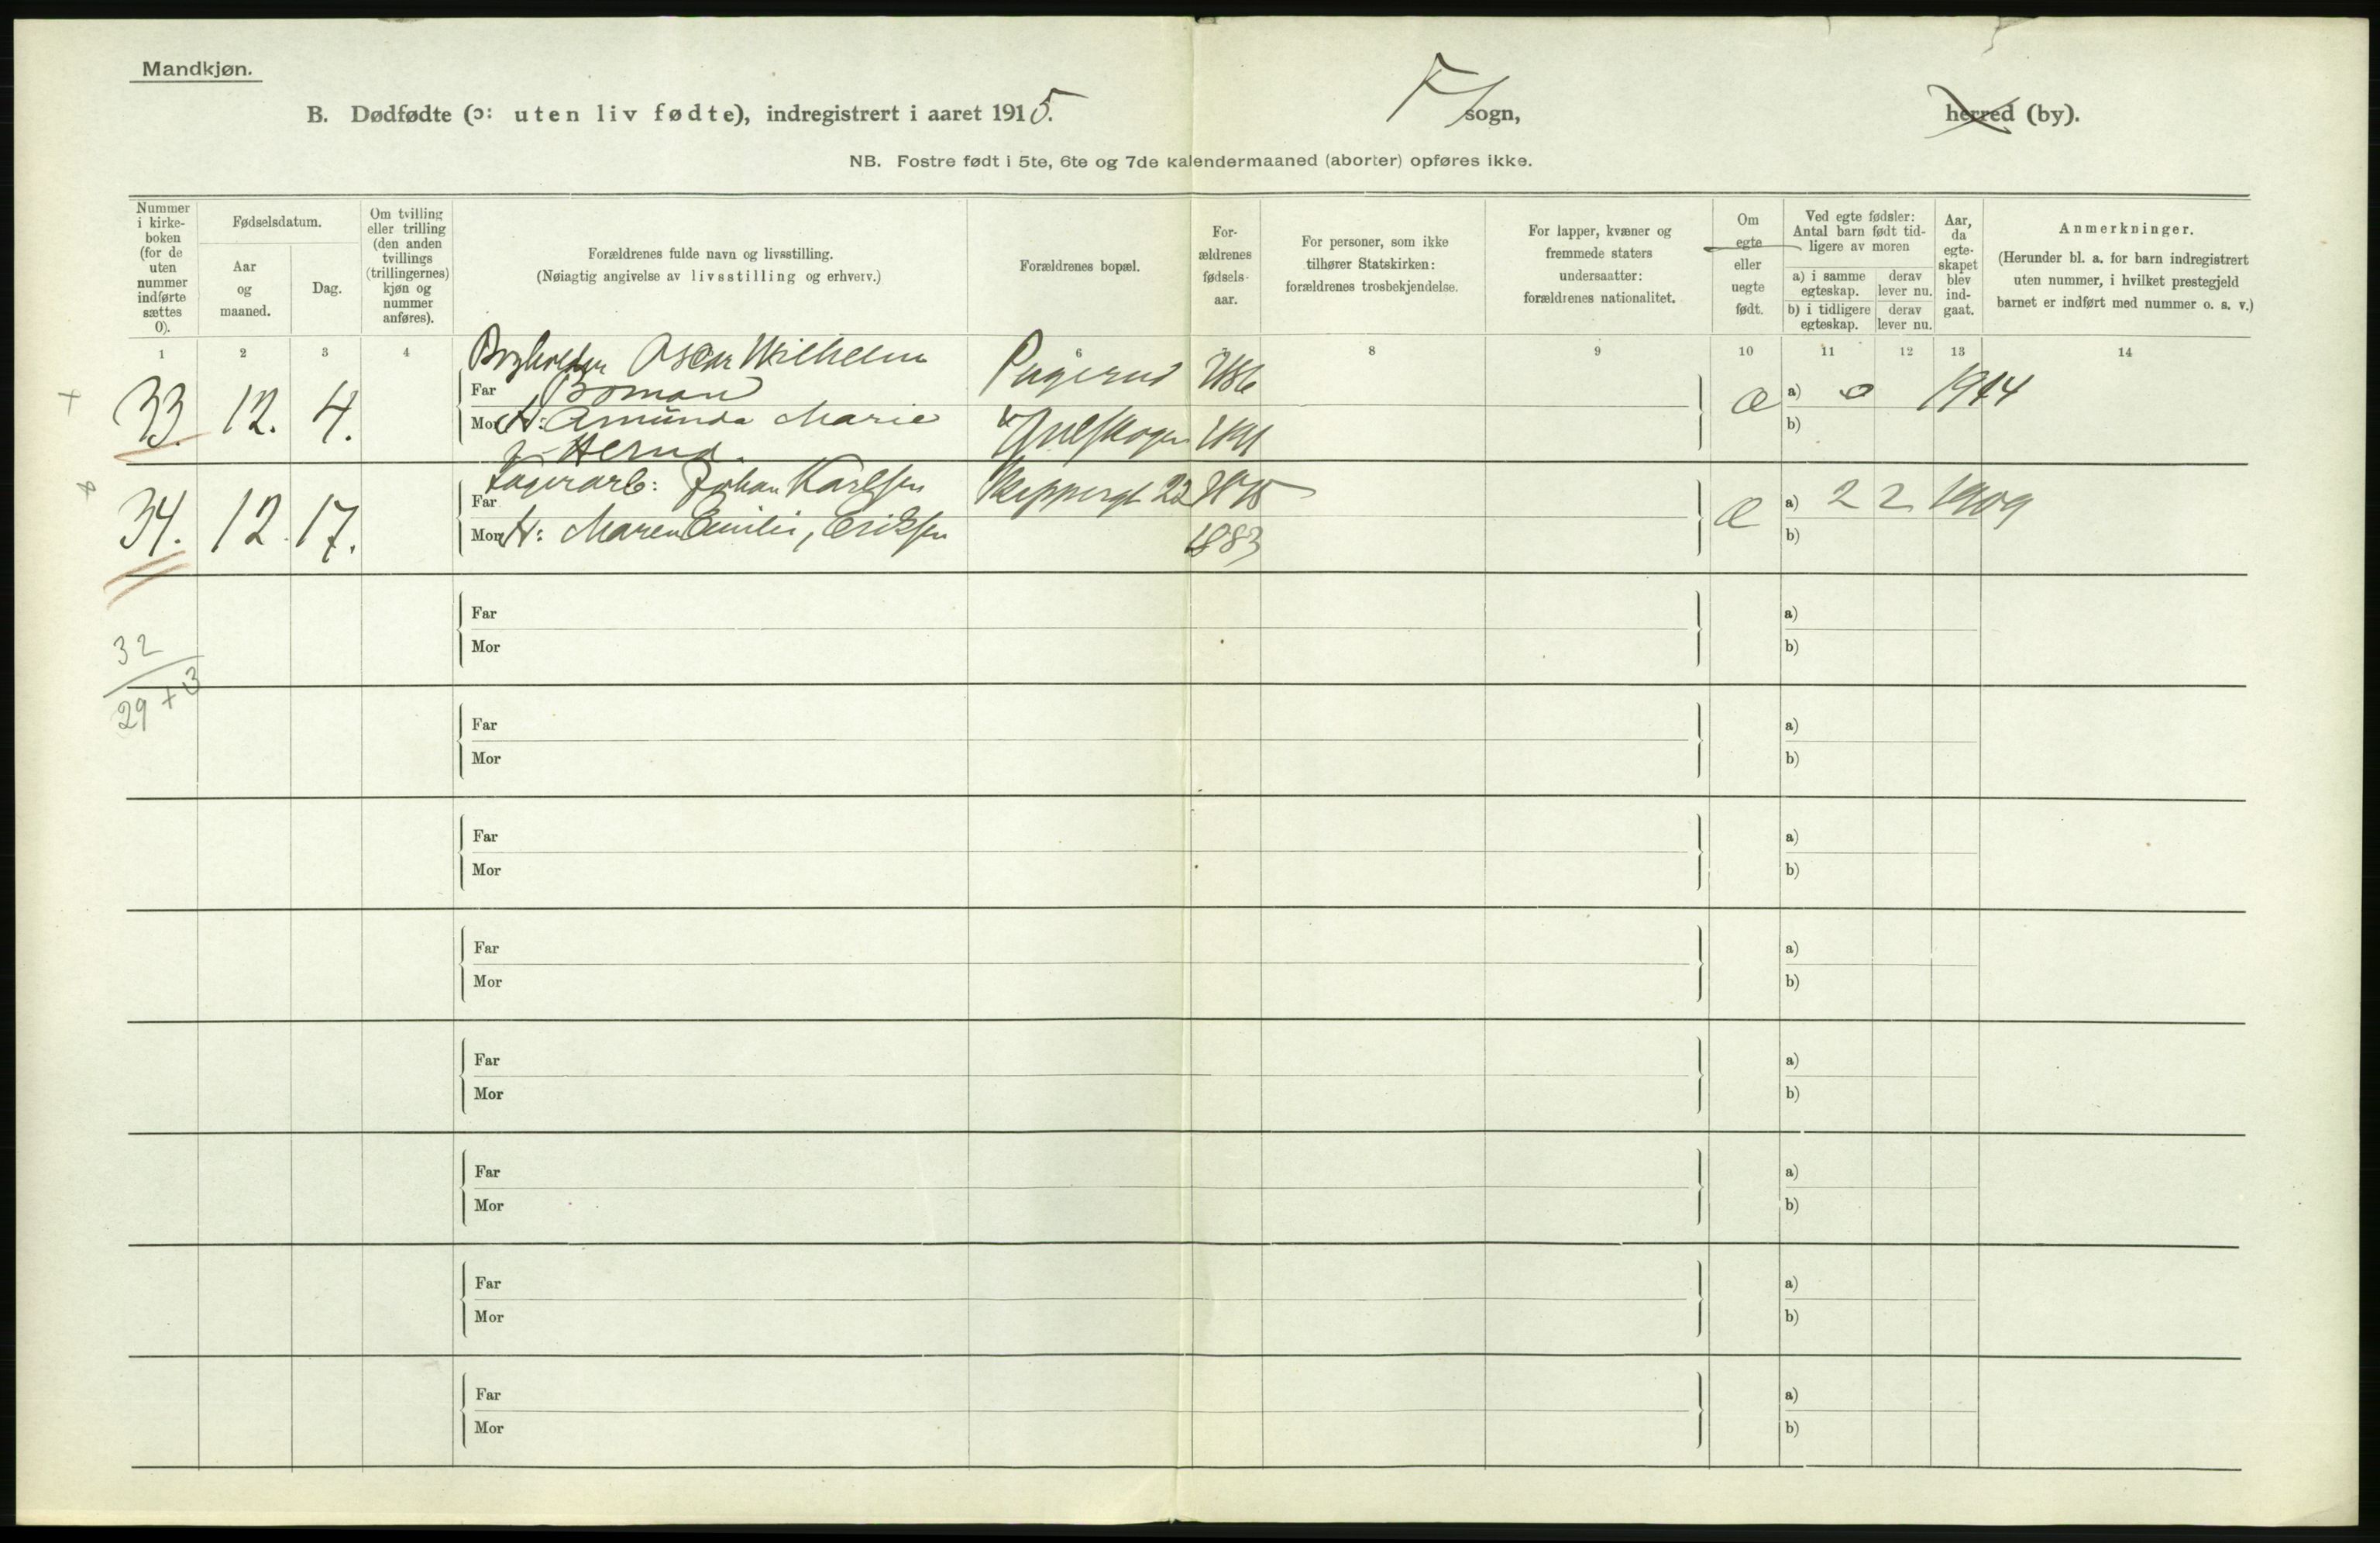 Mandkjøn.
B. Dødfødte (ɔ: uten liv fødte), indregistrert i aaret 1915.
sogn,
herred (by).
NB. Fostre født i 5te, 6te og 7de kalendermaaned (aborter) opføres ikke.
Nummer i kirke-boken (for de uten nummer indførte sættes 0).
Fødselsdatum.
Aar og maaned.
Dag.
Om tvilling eller trilling (den anden tvillings (trillingernes) kjøn og nummer anføres).
Forældrenes fulde navn og livsstilling.
(Nøiagtig angivelse av livsstilling og erhverv.)
Forældrenes bopæl.
For-ældrenes fødsels-aar.
For personer, som ikke tilhører Statskirken: forældrenes trosbekjendelse.
For lapper, kvæner og fremmede staters undersaatter: forældrenes nationalitet.
Om egte eller uegte født.
Ved egte fødsler: Antal barn født tid-ligere av moren
a) i samme egteskap.
derav lever nu.
b) i tidligere egteskap.
derav lever nu.
Aar, da egte-skapet blev ind-gaat.
Anmerkninger.
(Herunder bl. a. for barn indregistrert uten nummer, i hvilket prestegjeld barnet er indført med nummer o. s. v.)
1 2 3 4 6 8 9 10 11 12 13 14
33. 12. 4.
Far Oscar Wilhelm Boman 1886
Mor H: Amunda Marie f. Herud
Æ a) 0 1914
b)
34. 12. 17.
Far Lagerarb: Johan Karlsen 22
Mor H: Maren Emilie, Eriksen 1883
Æ a) 2 2 1909
b)
32
29 + 3
Far a)
Mor b)
Far a)
Mor b)
Far a)
Mor b)
Far a)
Mor b)
Far a)
Mor b)
Far a)
Mor b)
Far a)
Mor b)
Far a)
Mor b)